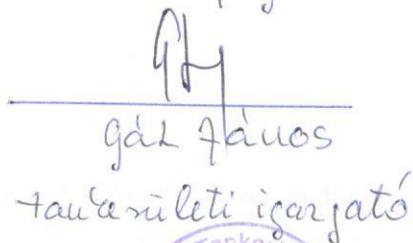 Gál János
tankerületi igazgató
Tanke